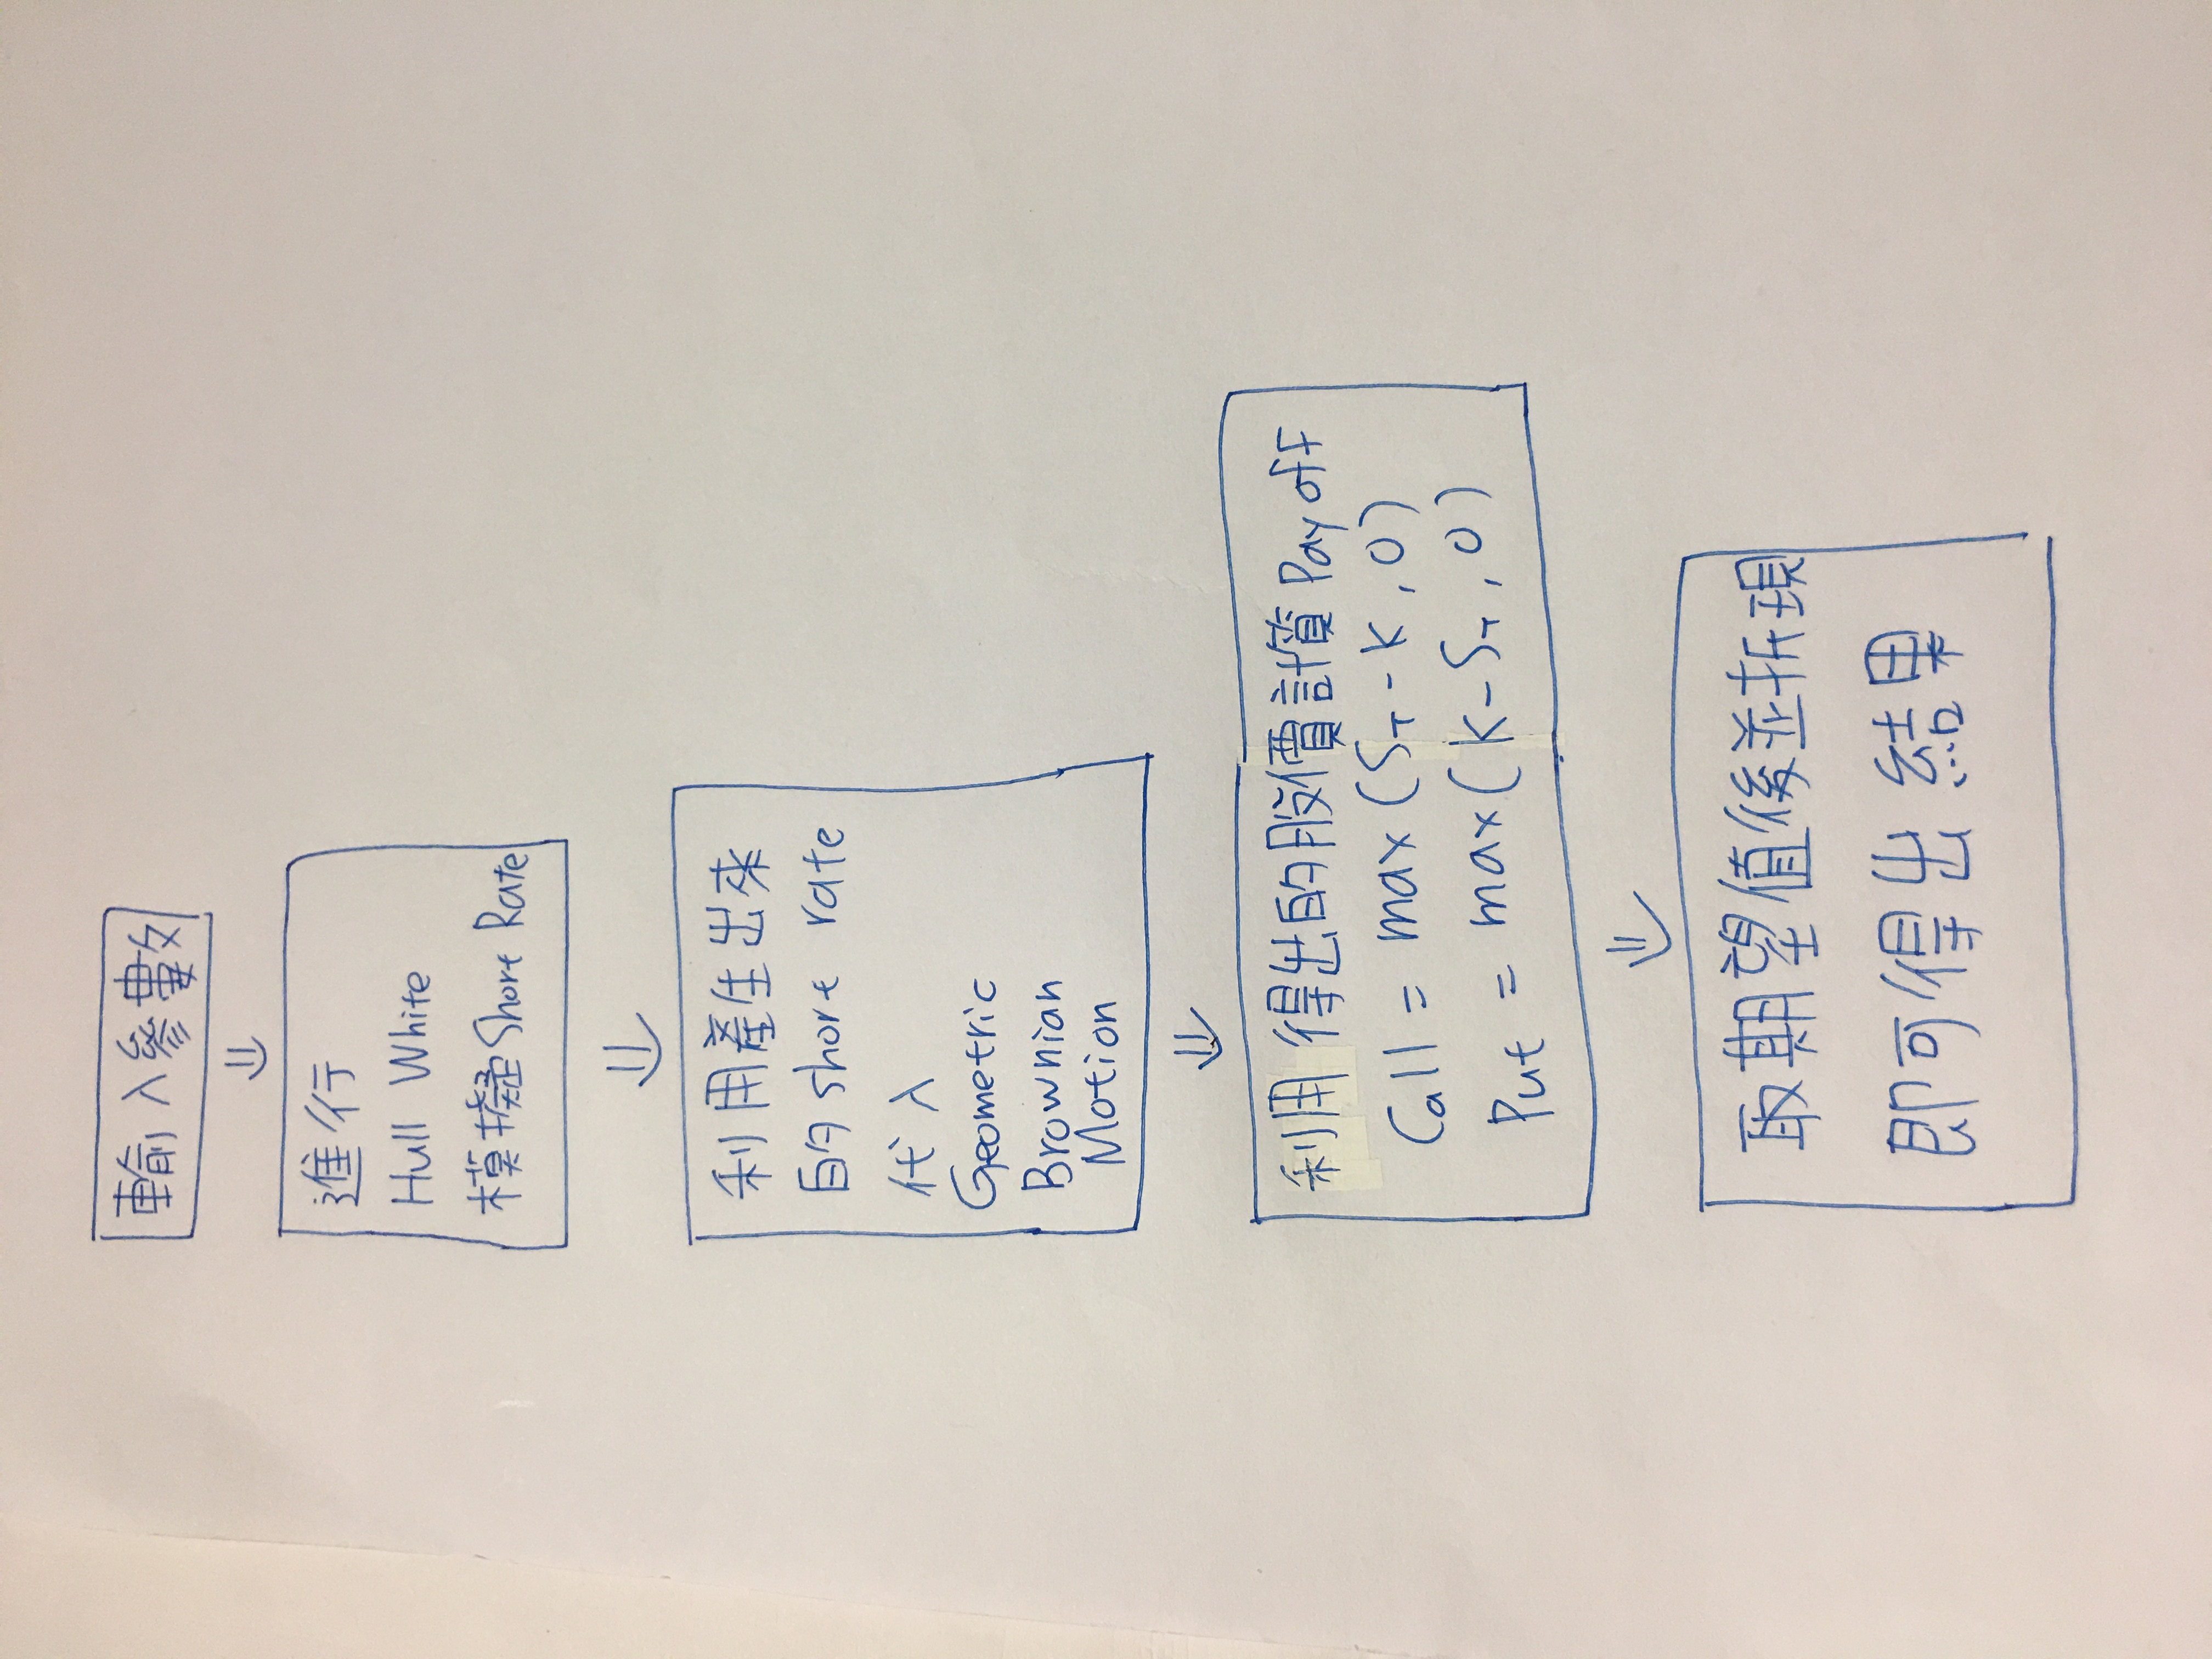 輸入參數
進行
Hull White
模擬Short Rate
利用產生出來
的short rate
代入
Geometric
Brownian
Motion
利用得出的股價計算Payoff
Call = max(S_T - K, 0)
Put = max(K - S_T, 0)
取期望值後並折現
即可得出結果